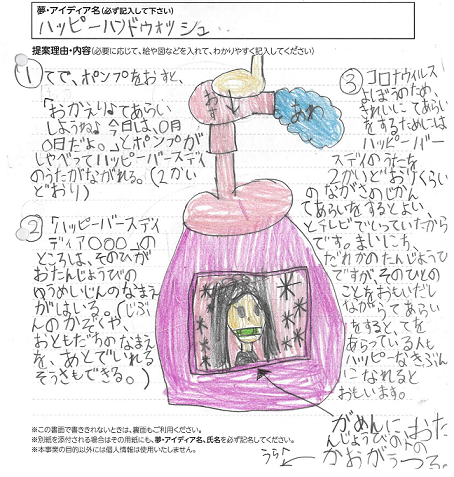 夢・アイディア名(必ず記入して下さい)
ハッピーハンドウォッシュ
提案理由・内容(必要に応じて、絵や図などを入れて、わかりやすく記入してください)
①てで、ポンプをおすと、
「おかえり♪てあらい
しようね♪今日は、0月
0日だよ。」とポンプが
しゃべってハッピーバースディ
のうたがながれる。(2かい
どおり)
②「ハッピーバースディ
ディア○○○」の
ところは、そのひが
おたんじょうびの
ゆうめいじんのなまえ
がはいる。(じぶ
んのかぞくや、
おともだちのなまえ
を、あとでいれる
そうさもできる。)
おす
あわ
③コロナウィルス
よぼうのため、
きれいにてあらい
をするためには
ハッピーバー
スデイのうたを
2かいどおりくらい
のながさのじかん
てあらいをするとよい
とテレビでいっていたから
です。まいにち、
だれかのたんじょうび
ですが、そのひとの
ことをおもいだし
ながらてあらい
をすると、てを
あらっている人も
ハッピーなきぶん
になれると
おもいます。
がめんに、おた
んじょうびの人の
かおがうつる。
うら
※この書面で書ききれないときは、裏面もご利用ください。
※別紙を添付される場合はその用紙にも、夢・アイディア名、氏名を必ず記名してください。
※本事業の目的以外には個人情報は使用いたしません。